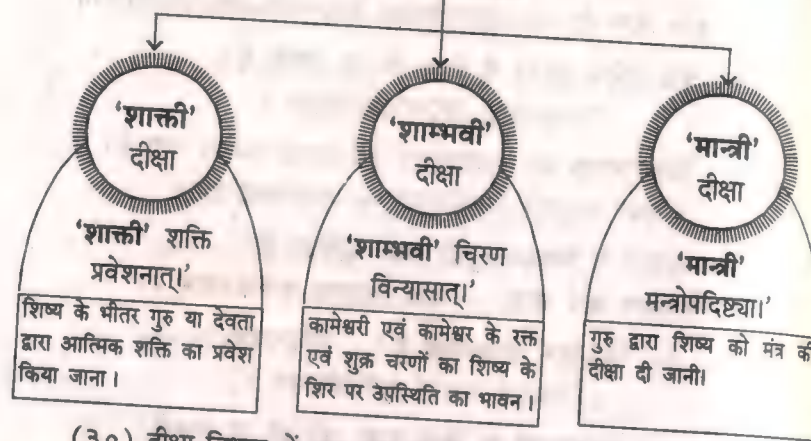 'शाक्ती'
दीक्षा
'शाक्ती' शक्ति
प्रवेशनात्।'
शिष्य के भीतर गुरु या देवता
द्वारा आत्मिक शक्ति का प्रवेश
किया जाना।
'शाम्भवी'
दीक्षा
'शाम्भवी' चिरण
विन्यासात्।'
कामेश्वरी एवं कामेश्वर के रक्त
एवं शुक्र चरणों का शिष्य के
शिर पर उपस्थिति का भावन।
'मान्त्री'
दीक्षा
'मान्त्री'
मन्त्रोपदिष्ट्या।'
गुरु द्वारा शिष्य को मंत्र की
दीक्षा दी जानी।
(३०) दीक्षा